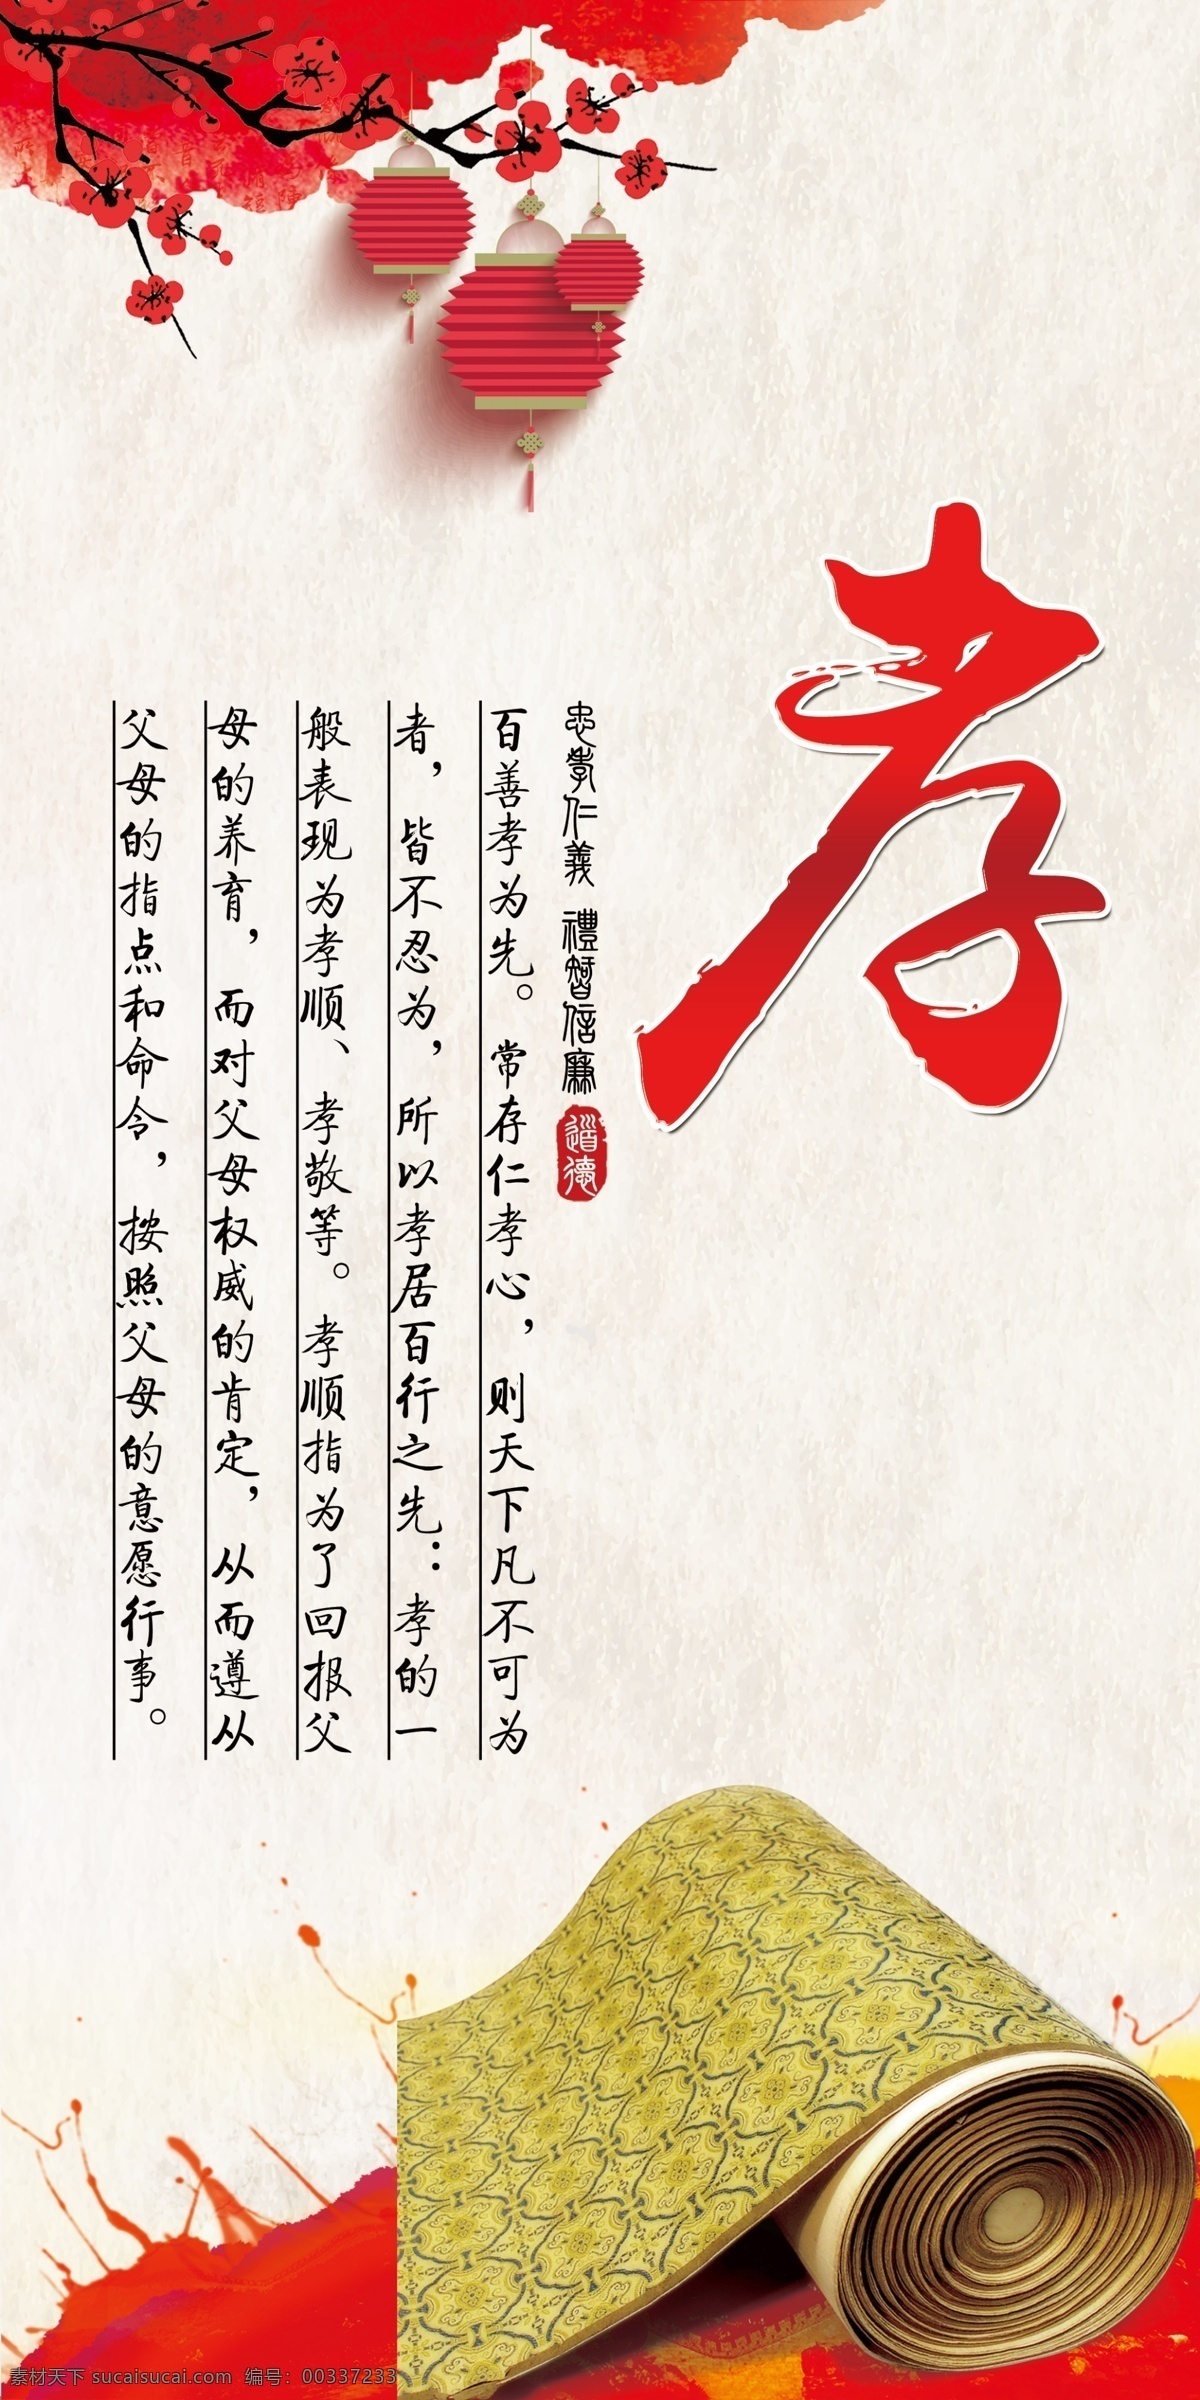 孝
忠孝仁義 禮智信廉
道德
百善孝为先。常存仁孝心，则天下凡不可为
者，皆不忍为，所以孝居百行之先：孝的一
般表现为孝顺、孝敬等。孝顺指为了回报父
母的养育，而对父母权威的肯定，从而遵从
父母的指点和命令，按照父母的意愿行事。
素材天下 sucaisucai.com 编号：00337233